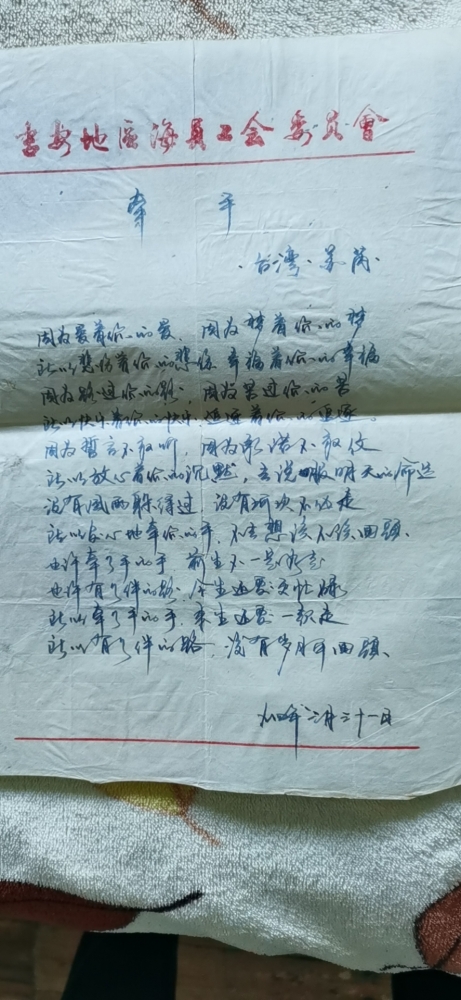 安地區海員工会委员會
牵 手
·台湾·苏芮·
因为爱着你的爱，因为梦着你的梦
所以悲伤着你的悲伤 幸福着你的幸福
因为路过你的路，因为苦过你的苦
所以快乐着你的快乐，追逐着你的追逐。
因为誓言不敢听，因为承诺不敢信
所以放心着你的沉默，去说服明天的命运
没有风雨躲得过，没有坎坷不必走
所以安心地牵你的手，不去想该不该回头、
也许牵了手的手 前生不一定好走
也许有了伴的路，今生还要更忙碌
所以牵了手的手，来生还要一起走
所以有了伴的路，没有岁月可回头、
年 月 十一日